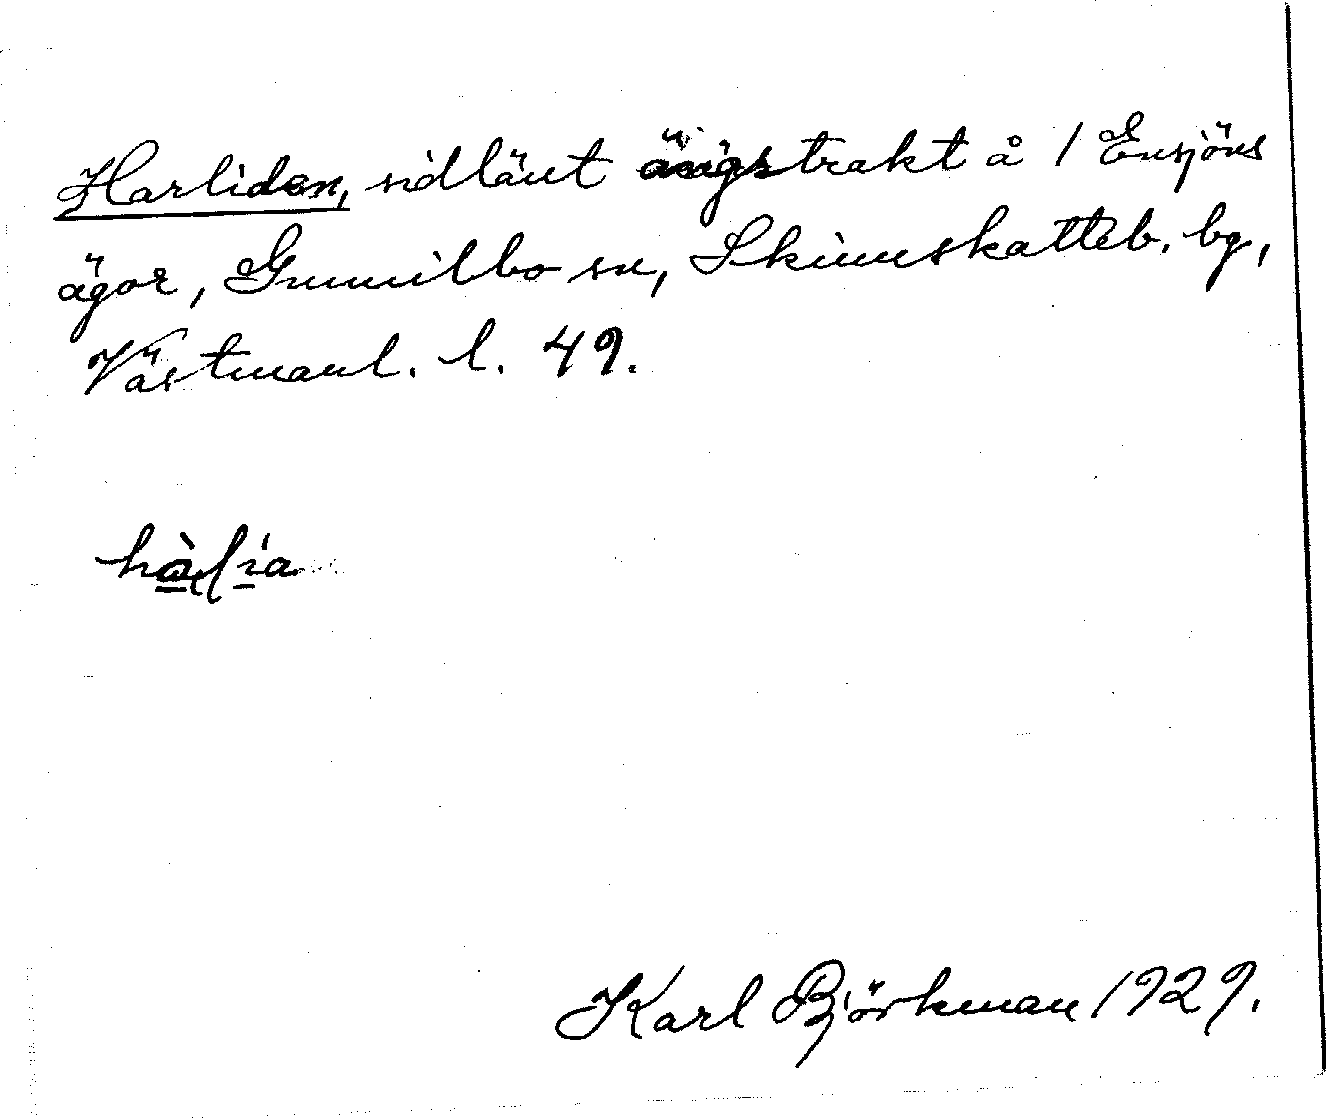 Harliden, sidlänt ängstrakt å 1 Ensjöns
ägor, Gunnilbo sn, Skinnskatteb. bg,
Västmanl. l. 49.
Karl Björkman 1929.